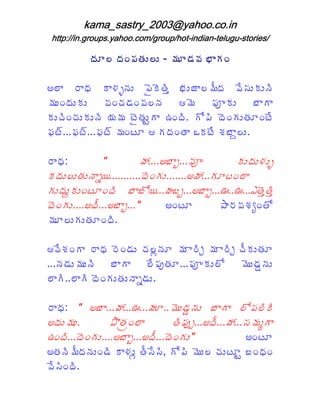 kama_sastry_2003@yahoo.co.in
http://in.groups.yahoo.com/group/hot-indian-telugu-stories/
దూల దంపతులు - మూడవ భాగం
అలా రాధ కాళ్ళను పైకెత్తి భుజాలమీద వేసుకుని
ముందుకు వంచడంవలన ఆమె పూకు బాగా
కుచించుకుని యమ బైతుగా ఉంది. గోపి దెంగుతూంటే
ఫట్...ఫట్...ఫట్ మంటూ ఆ గదంతా ఒకటే శబ్దాలు.
రాధ: " హా...అబా...పూ కుదుళ్ళు
కదులుతున్నాయి..........దెంగు.......అహా..గూటంలా
గుద్దుకుంటూంది బాబోయి...హబ్బ...అబా...ఊ..ఊ...ఎత్తెత్తి
దెంగు....అదీ...అబా..." అంటూ పారవశ్యంతో
మూలుగుతూంది.
ఆవేశంగా రాధ రెండు చళ్లనూ మార్చి మార్చి చీకుతూ
...నడుముని బాగా లేపుతూ...పూకులో మొడ్డను
లాగి..లాగి దెంగుతున్నాడు.
రాధ: " అబా...హా...ఊ...హలా..మొడ్డను బాగా లోపలికి
అదుము. హాత్రంలా తిప్పు...అదీ...హా...సమ్మగా
ఉంది...దెంగు....అబా...అదీ...దెంగు" అంటూ
అతనిమీదనుండి కాళ్లు తీసేసి, గోపి మొల చుట్టూ బంధం
వేసింది.